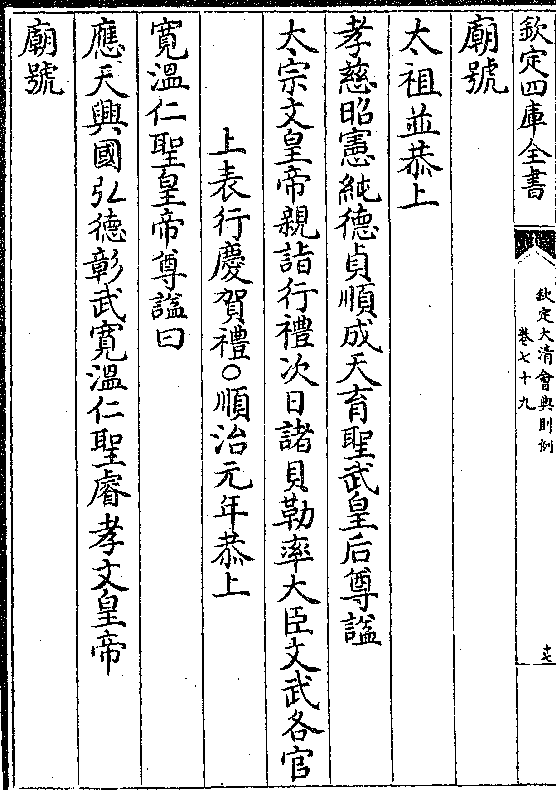 欽定四庫全書
欽定大清會典則例
卷七十九
廟號
太祖並恭上
孝慈昭憲純德貞順成天育聖武皇后尊諡
太宗文皇帝親詣行禮次日諸貝勒率大臣文武各官
上表行慶賀禮○順治元年恭上
寬溫仁聖皇帝尊諡曰
應天興國弘德彰武寬溫仁聖睿孝文皇帝
廟號